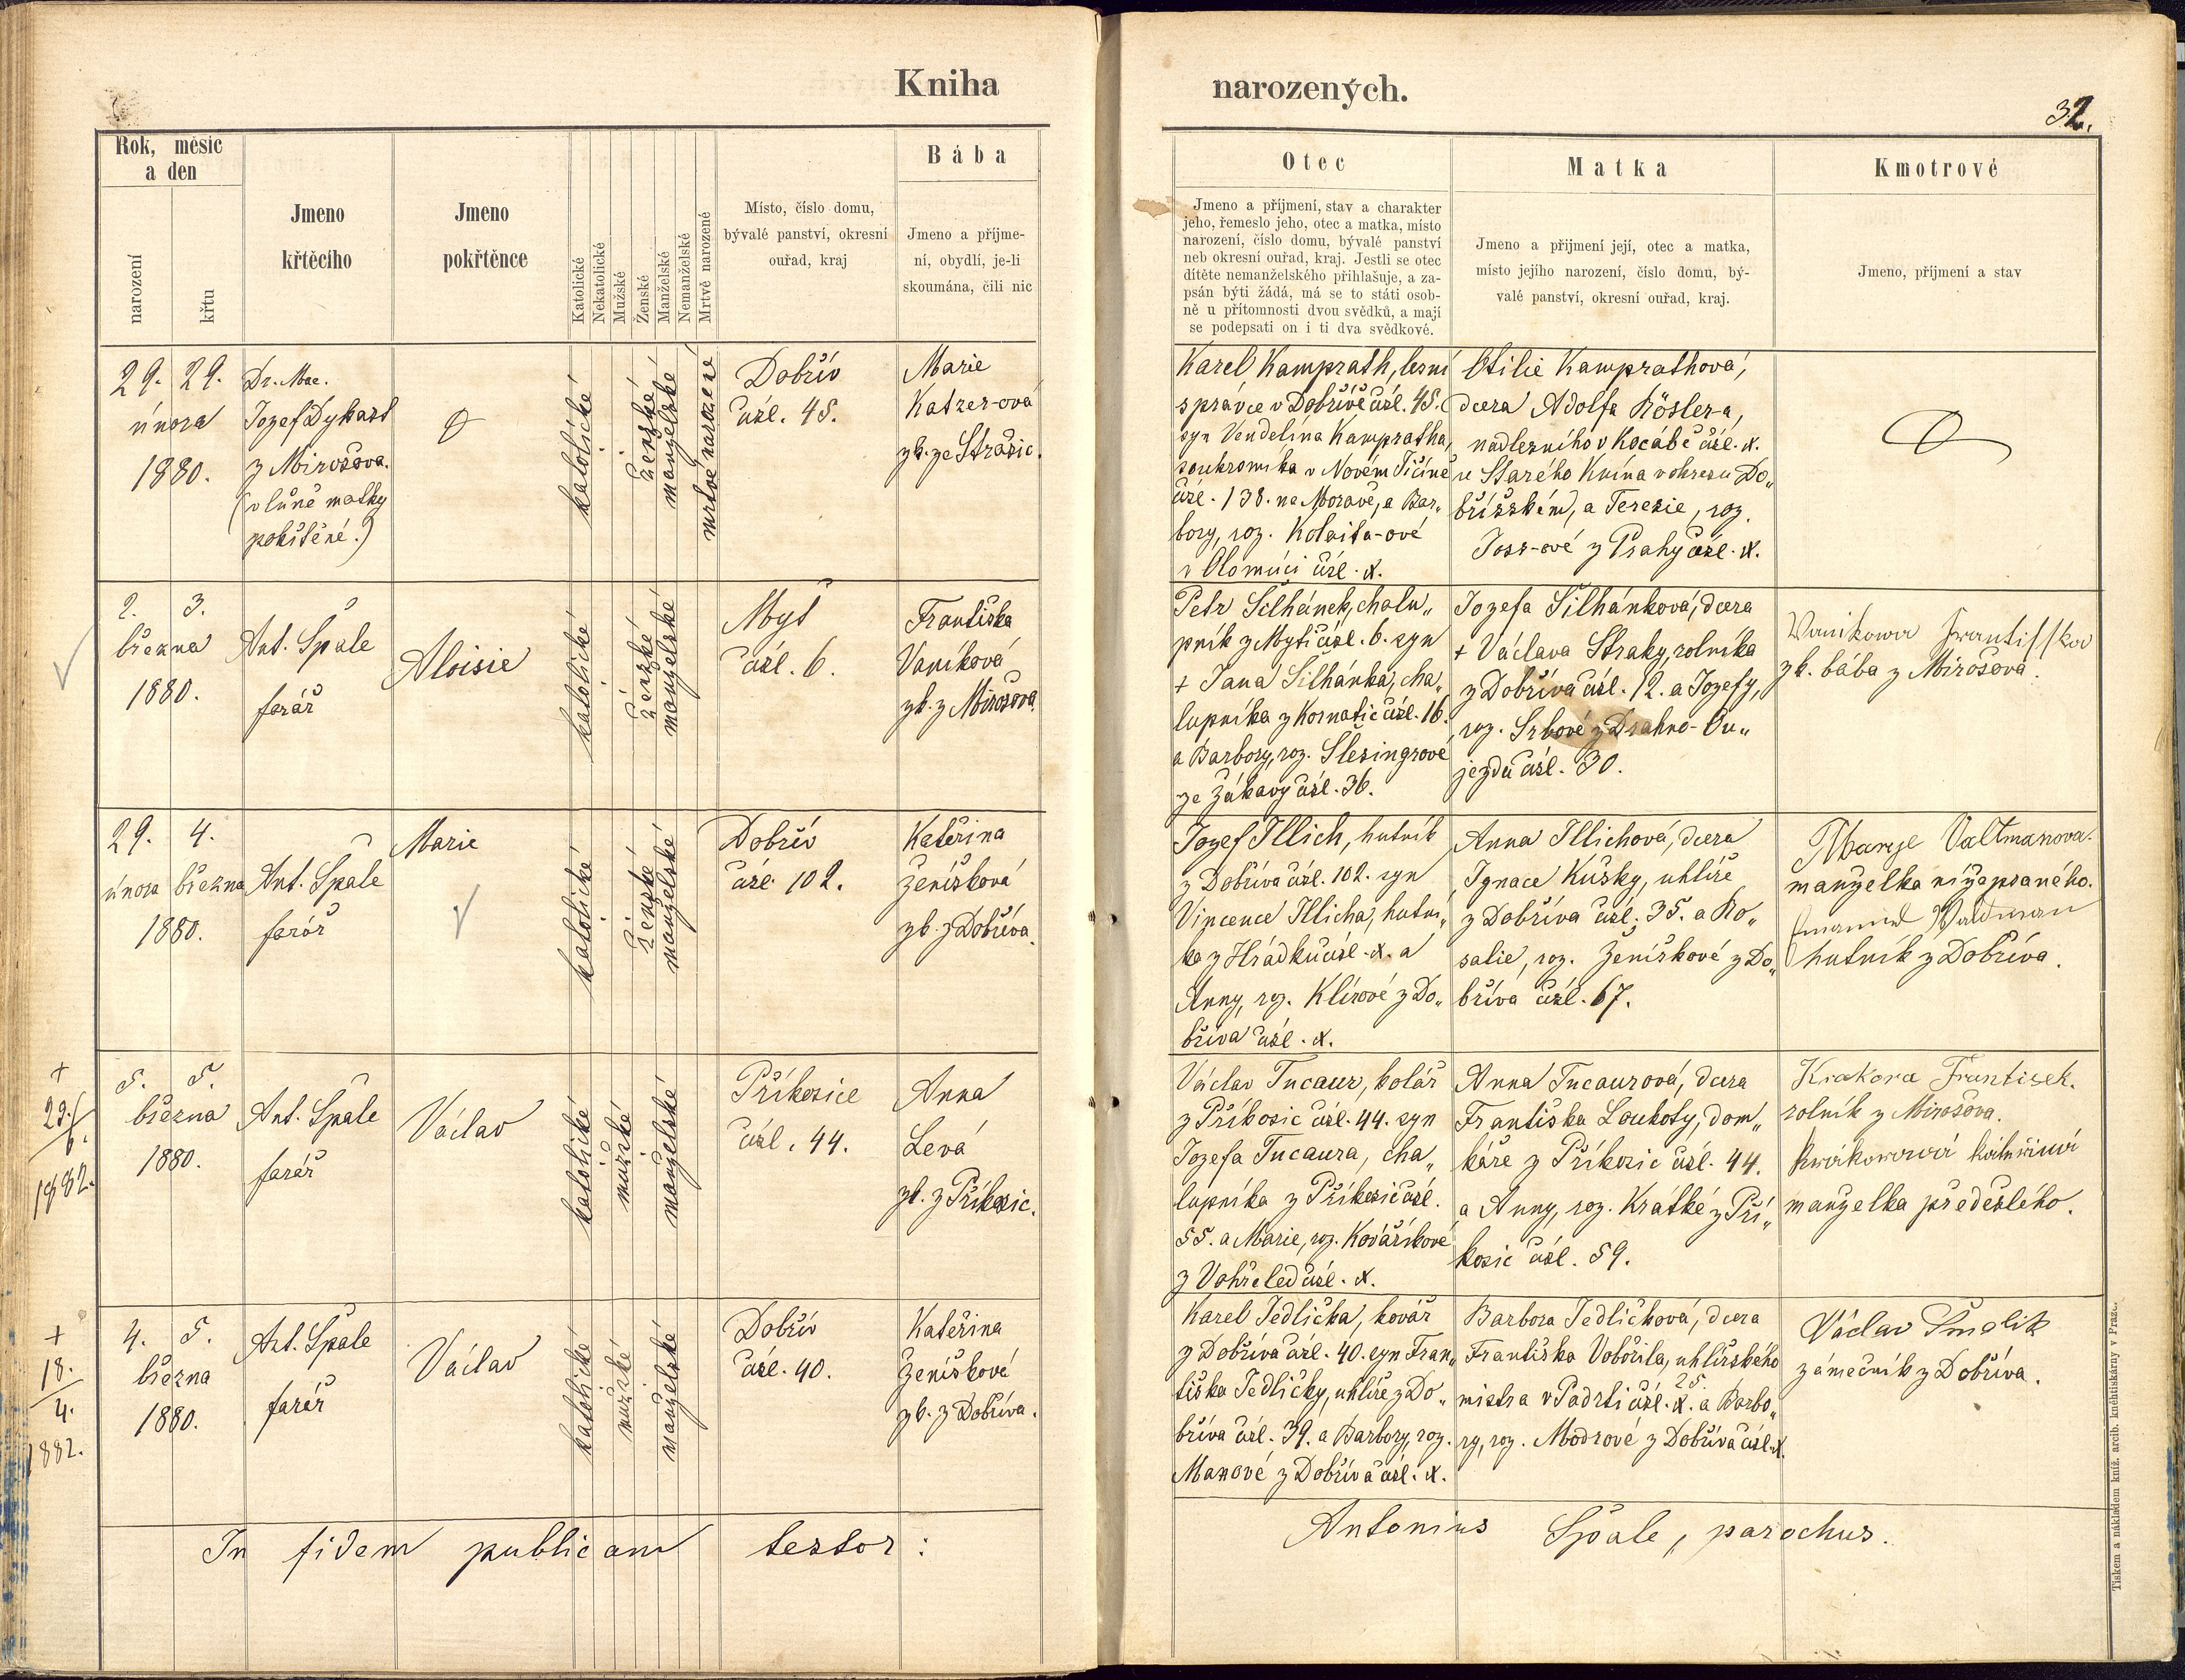 Kniha
narozených.
32.
Rok, měsíc
a den
narození
křtu
Jmeno
křtěcího
Jmeno
pokřtěnce
Katolické
Nekatolické
Mužské
Ženské
Manželské
Nemanželské
Mrtvě narozené
Místo, číslo domu,
bývalé panství, okresní
ouřad, kraj
Bába
Jmeno a příjme-
ní, obydlí, je-li
skoumána, čili nic
Otec
Jmeno a příjmení, stav a charakter
jeho, řemeslo jeho, otec a matka, místo
narození, číslo domu, bývalé panství
neb okresní ouřad, kraj. Jestli se otec
dítěte nemanželského přihlašuje, a za-
psán býti žádá, má se to státi osob-
ně u přítomnosti dvou svědků, a mají
se podepsati on i ti dva svědkové.
Matka
Jmeno a přijmení její, otec a matka,
místo jejího narození, číslo domu, bý-
valé panství, okresní ouřad, kraj.
Kmotrové
Jmeno, příjmení a stav
29. 29.
února
1880.
Dr. Mae.
Jozef Dykast
z Mirošova.
(v lůně matky
pokřtěné.)
katolické
ženské
manželské
mrtvě narozené
Dobřív
čísl. 45.
Marie
Katzer-ová
zk. ze Strašic.
Karel Kamprath, lesní
správce v Dobřívě čísl. 45.
syn Vendelína Kampratha,
soukromníka v Novém Tičíně
čísl. 138. na Moravě, a Bar„
bory, roz. Kolaita-ové
v Olomúci čísl. x.
Otilie Kamprathová,
dcera Adolfa Rösler-a,
nadlesního v Kocábě čísl. x.
u Starého Knína v okresu Do„
bříšském, a Teresie, roz.
Joss-ové z Prahy čísl. x.
2. 3.
března
1880.
Ant. Špale
farář
Aloisie
katolické
ženské
manželské
Mýť
čísl. 6.
Františka
Vaníková
zk. z Mirošova
Petr Šilhánek, chalu„
pník z Myti čísl. 6. syn
+ Jana Šilhánka, cha„
lupníka z Kornatic čísl. 16.
a Barbory, roz. Šlesingrové
ze Zákavy čísl. 36.
Jozefa Šilhánková, dcera
+ Václava Straky, rolníka
z Dobříva čísl. 12. a Jozefy,
roz. Srbové z Drahno-Ou„
jezdu čísl. 30.
Wanikowa Frantisska
zk. bába z Mirošova.
29. 4.
února března
1880.
Ant. Špale
farář
Marie
katolické
ženské
manželské
Dobřív
čísl. 102.
Kateřina
Ženíšková
zk. z Dobříva.
Jozef Illich, hutník
z Dobříva čísl. 102. syn
Vincence Illicha, hutní„
ka z Hrádku čísl. x. a
Anny, roz. Klírové z Do„
bříva čísl. x.
Anna Illichová, dcera
Ignace Kušky, uhlíře
z Dobříva čísl. 35. a Ro„
salie, roz. Ženíškové z Do„
bříva čísl. 67.
Marye Valtmanova.
manželka nížepsaného.
Emanuel Waldman
hutník z Dobříva.
+
23./6.
1882.
5. 5.
března
1880.
Ant. Špale
farář
Václav
katolické
mužské
manželské
Příkosice
čísl. 44.
Anna
Levá
zk. z Příkosic.
Václav Tucaur, kolář
z Příkosic čísl. 44. syn
Jozefa Tucaura, cha„
lupníka z Příkosic čísl.
55. a Marie, roz. Kovaříkové
z Vohřeled čísl. x.
Anna Tucaurová, dcera
Františka Loukoty, dom„
káře z Příkosic čísl. 44.
a Anny, roz. Krátké z Pří„
kosic čísl. 59.
Krakora Frantisek.
rolník z Mirošova.
manželka předešlého.
+
18.
4.
1882.
4. 5.
března
1880.
Ant. Špale
farář
Václav
katolické
mužské
manželské
Dobřív
čísl. 40.
Kateřina
Ženíškové
zk. z Dobříva.
Karel Jedlička, kovář
z Dobříva čísl. 40. syn Fran„
tiška Jedličky, uhlíře z Do„
bříva čísl. 39. a Barbory, roz.
Manové z Dobříva čísl. x.
Barbora Jedličková, dcera
Františka Vobořila, uhlířského
25.
mistra v Padrti čísl. x. a Barbo„
ry, roz. Modrové z Dobříva čísl. x.
Václav Šmolik
zámečník z Dobříva.
In fidem publicam testor:
Antonius Špale, parochus.
Tiskem a nákladem kníž. arcib. kněhtiskárny v Praze.